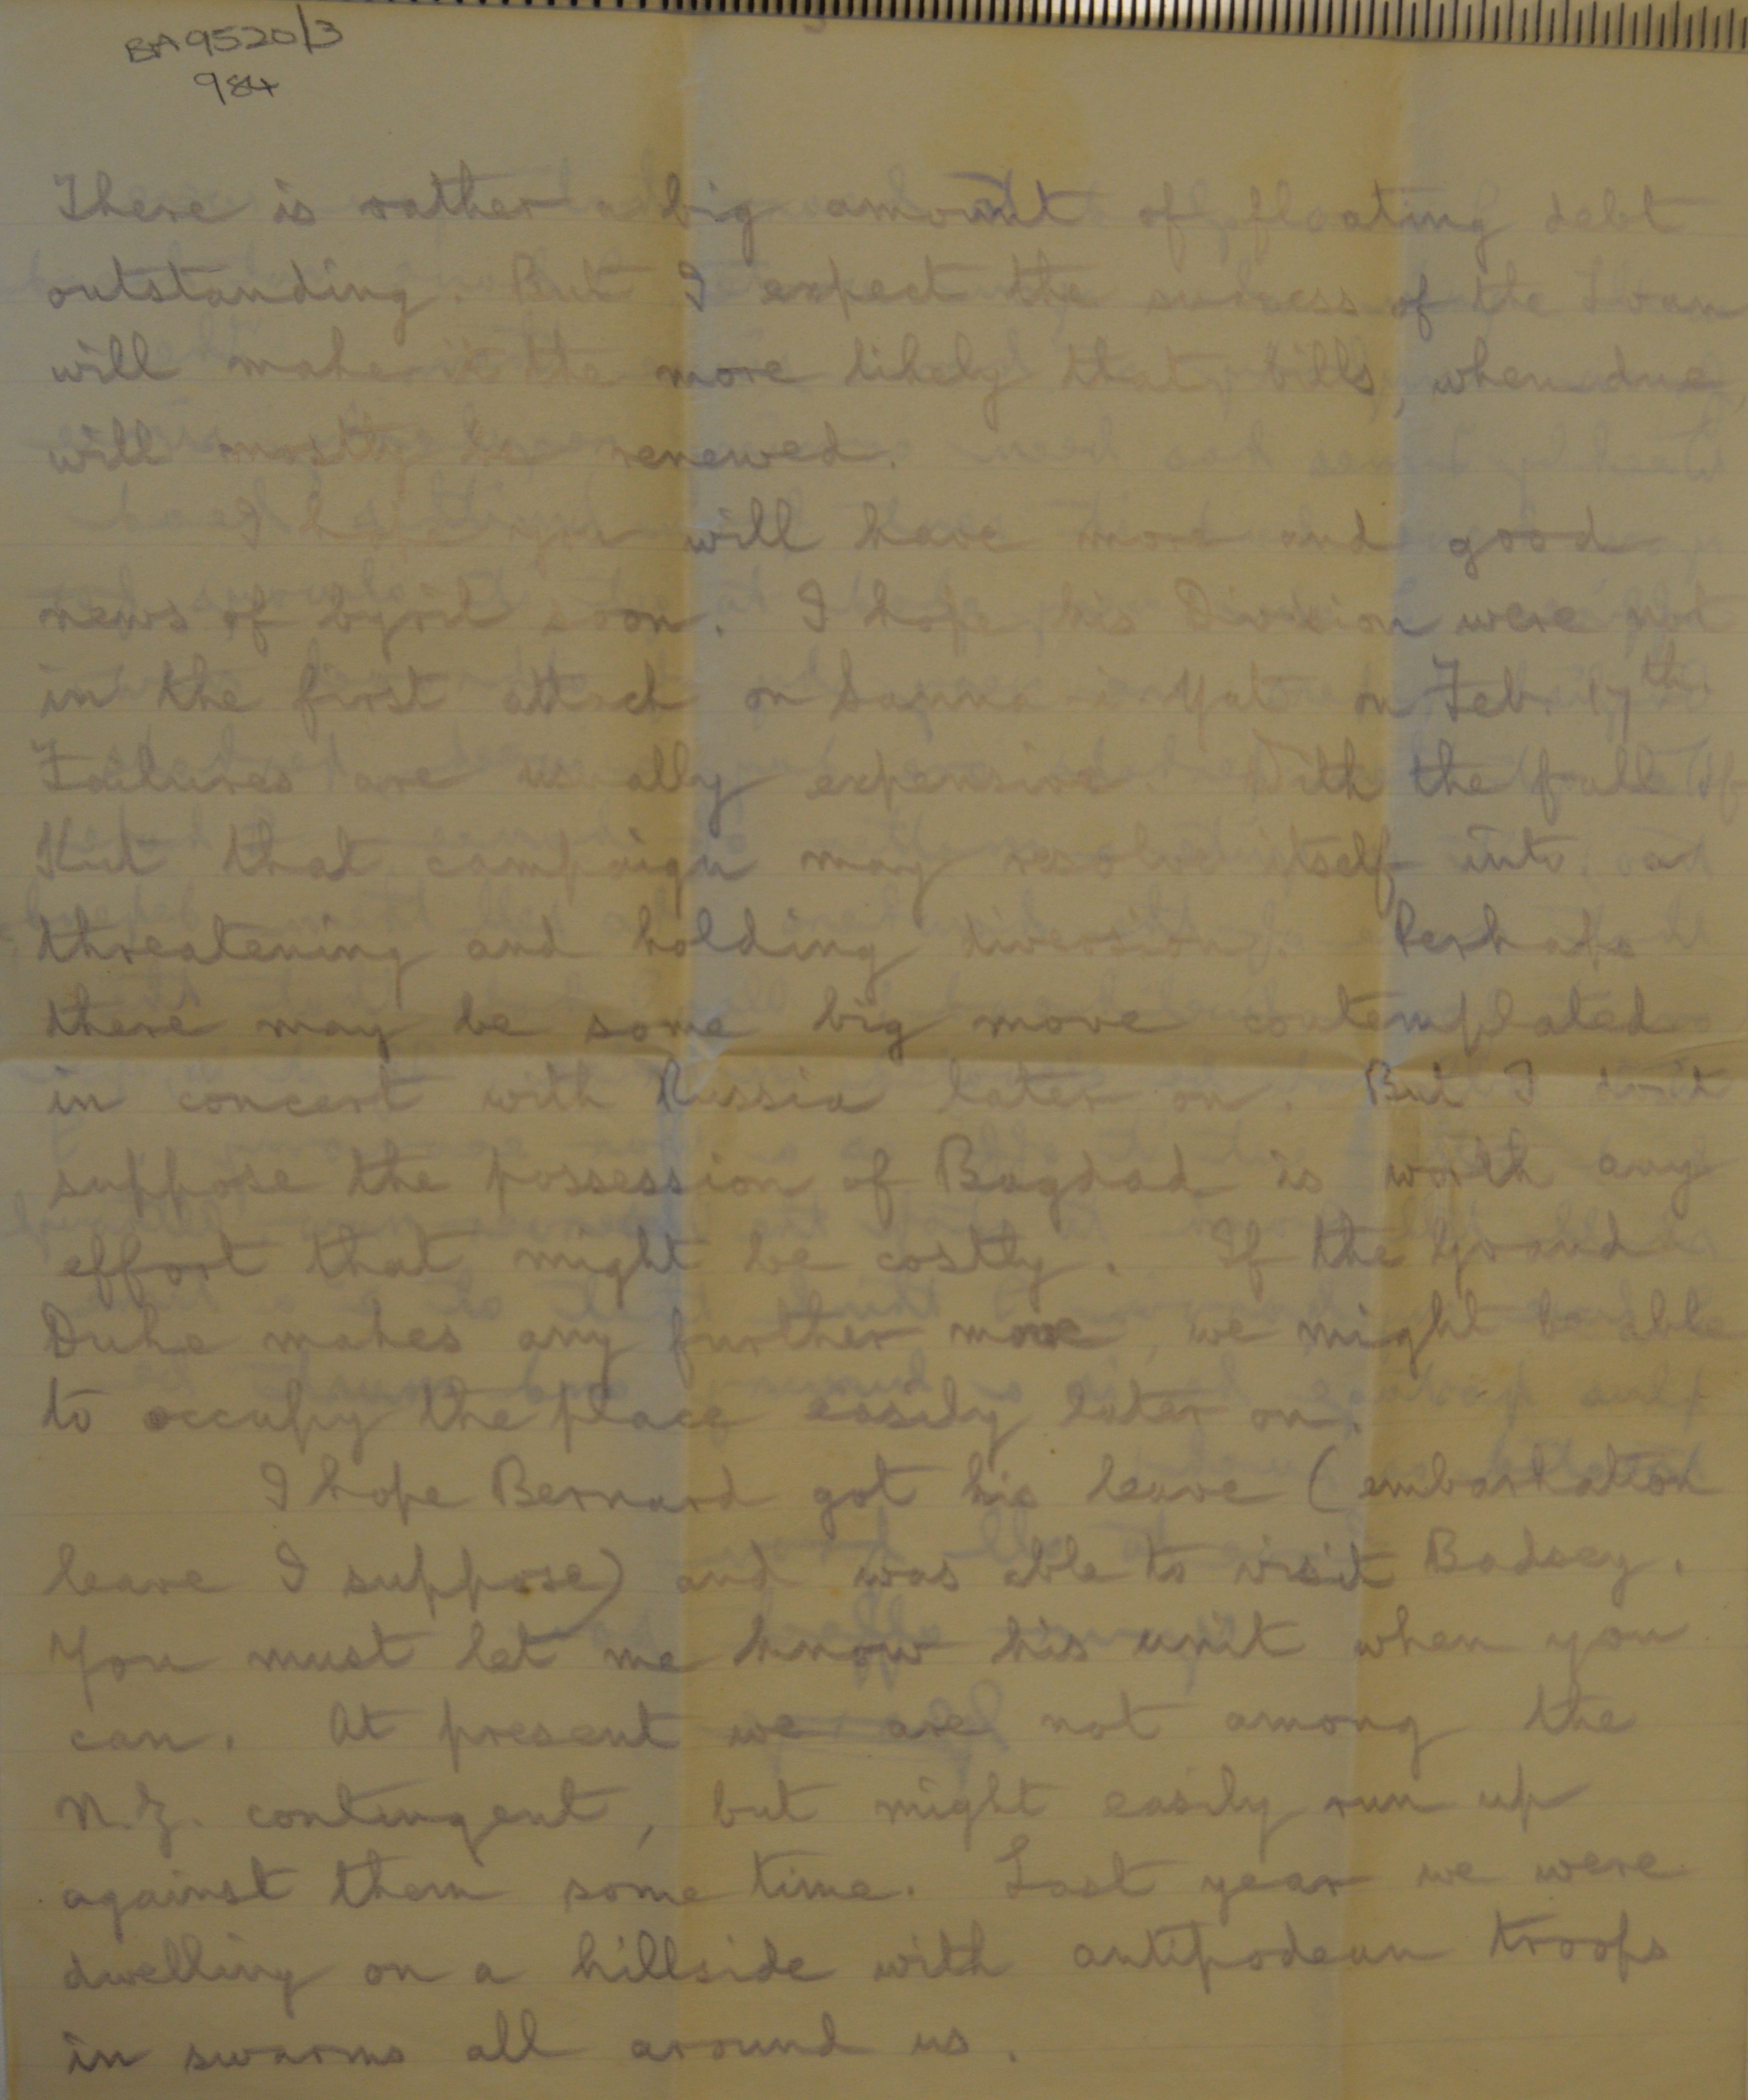 BA9520/3
984
There is rather a big amount of floating debt
outstanding. But I expect the success of the Loan
will make it the more likely that bills, when due,
will mostly be renewed.
I hope you will have more and good
news of Cyril soon. I hope his Division were not
in the first attack on Sanna-i-Yat on Feb. 17th.
Failures are usually expensive. With the fall of
Kut that campaign may resolve itself into a
threatening and holding diversion. Perhaps
there may be some big move contemplated
in concert with Russia later on. But I don't
suppose the possession of Bagdad is worth any
effort that might be costly. If the Grand
Duke makes any further move, we might be able
to occupy the place easily later on.
I hope Bernard got his leave (embarkation
leave I suppose) and was able to visit Badsey.
You must let me know his unit when you
can. At present we are not among the
N.Z. contingent, but might easily run up
against them some time. Last year we were
dwelling on a hillside with antipodean troops
in swarms all around us.